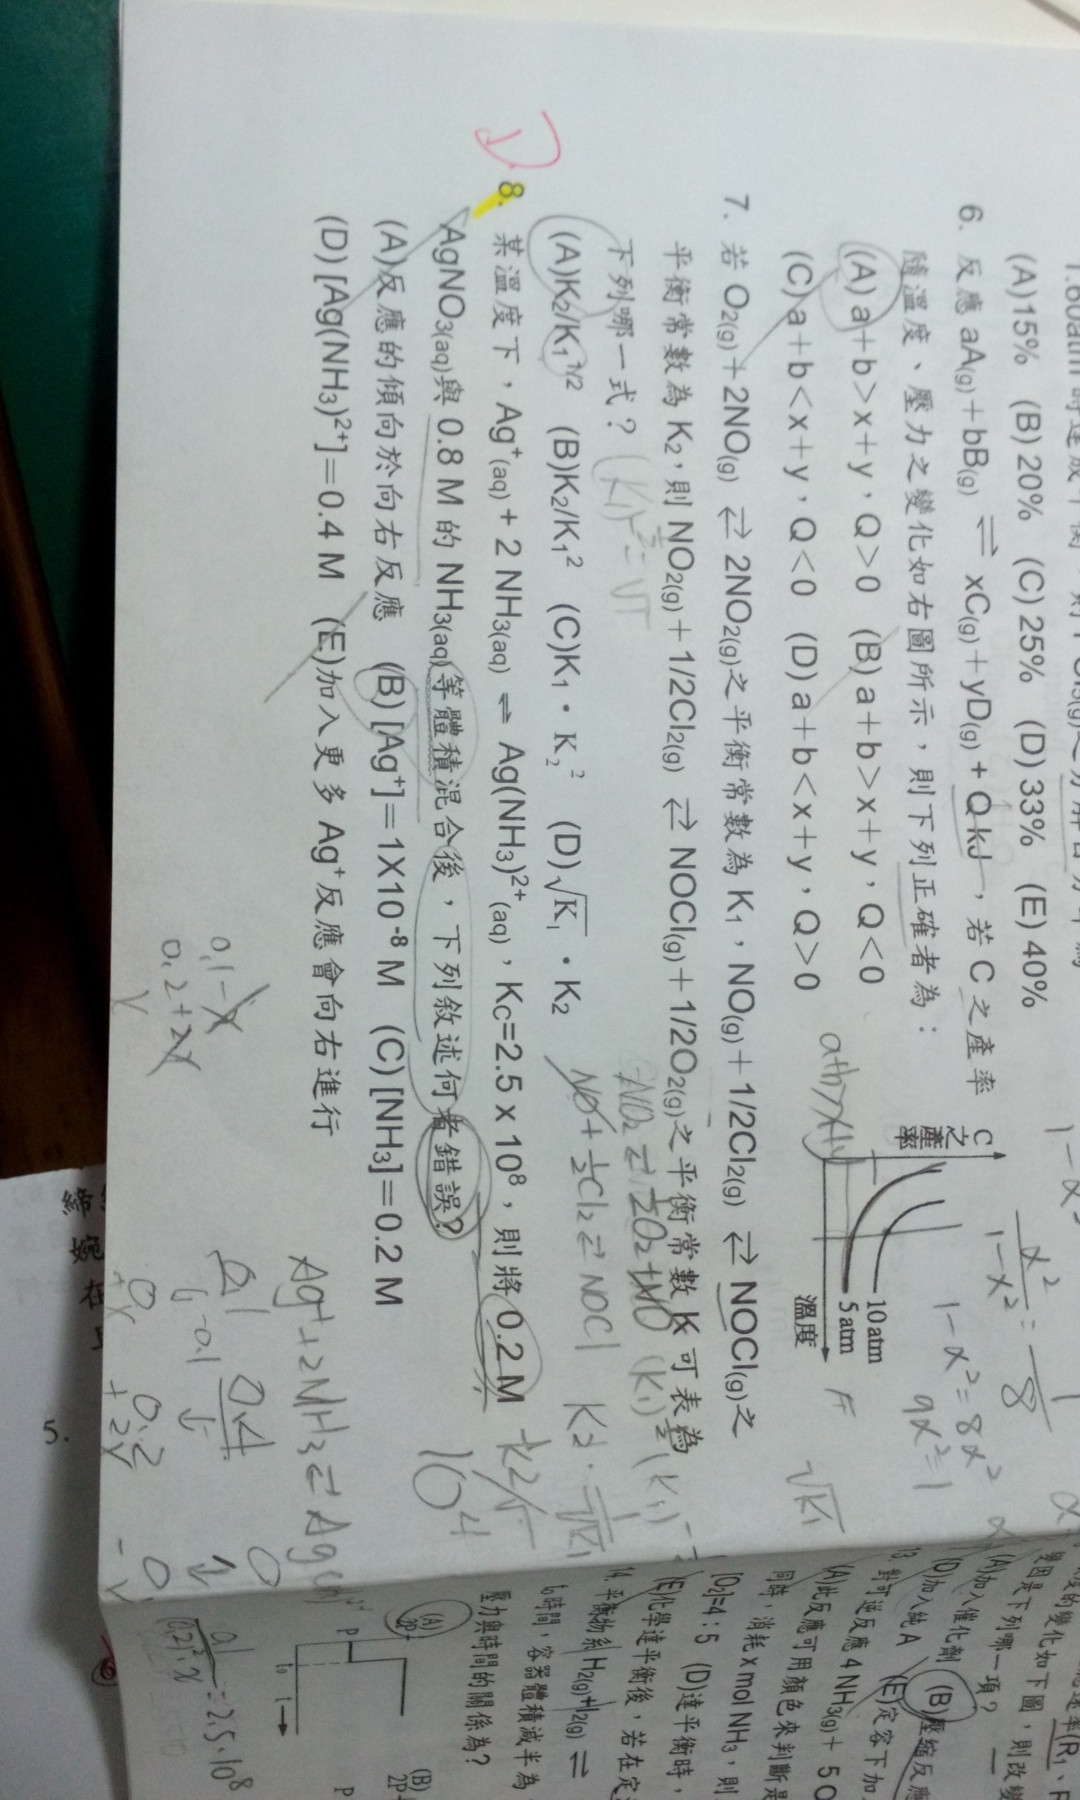 (A)15% (B)20% (C)25% (D)33% (E)40%
6. 反應 aA(g)+bB(g) ⇌ xC(g)+yD(g)+Q kJ,若 C 之產率
隨溫度、壓力之變化如右圖所示,則下列正確者為:
(A) a+b>x+y,Q>0 (B) a+b>x+y,Q<0
(C) a+b<x+y,Q<0 (D) a+b<x+y,Q>0
C之產率
10 atm
5 atm
溫度
7. 若 O2(g)+2NO(g) ⇄ 2NO2(g)之平衡常數為 K1,NO(g)+1/2Cl2(g) ⇄ NOCl(g)之
平衡常數為 K2,則 NO2(g)+1/2Cl2(g) ⇄ NOCl(g)+1/2O2(g)之平衡常數 K 可表為
下列哪一式?
(A)K2/K1^1/2 (B)K2/K1^2 (C)K1・K2^2 (D)√K1・K2
D
8. 某溫度下,Ag+(aq)+2 NH3(aq) ⇌ Ag(NH3)2+(aq),KC=2.5 x 10^8,則將 0.2 M
AgNO3(aq)與 0.8 M 的 NH3(aq)等體積混合後,下列敘述何者錯誤?
(A)反應的傾向於向右反應 (B) [Ag+]=1X10^-8 M (C) [NH3]=0.2 M
(D) [Ag(NH3)2+]=0.4 M (E)加入更多 Ag+反應會向右進行
1-x²=8x²
9x²=1
a+b>x+y
√K1
NO+½Cl2⇄NOCl K2
10⁴
0.1-x
0.2+2x
Ag+ +2NH3⇄Ag
0.1 0.4
5.
(D)加入純 A (E)定容下加
(B)壓縮反應
13. 對可逆反應 4NH3(g)+5O
(A)此反應可用顏色來判斷是
同時,消耗 x mol NH3,則
[O2]=4:5 (D)達平衡時,
(E)化學達平衡後,若在定
14. 平衡物系 H2(g)+I2(g) ⇌
t0時間,容器體積減半為
壓力與時間的關係為?
(A)
2P
P
t0 t
(B)
2P
P
=2.5·10⁸